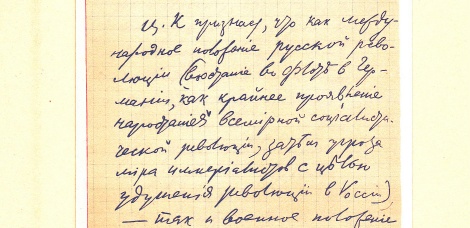 Ц. К признает, что как между-
народное положение русской рево-
люции (восстание во флоте в Гер-
мании, как крайнее проявление
нарастания всемирной социалисти-
ческой революции, затем угроза
мира империалистов с целью
удушения революции в России)
— так и военное положение